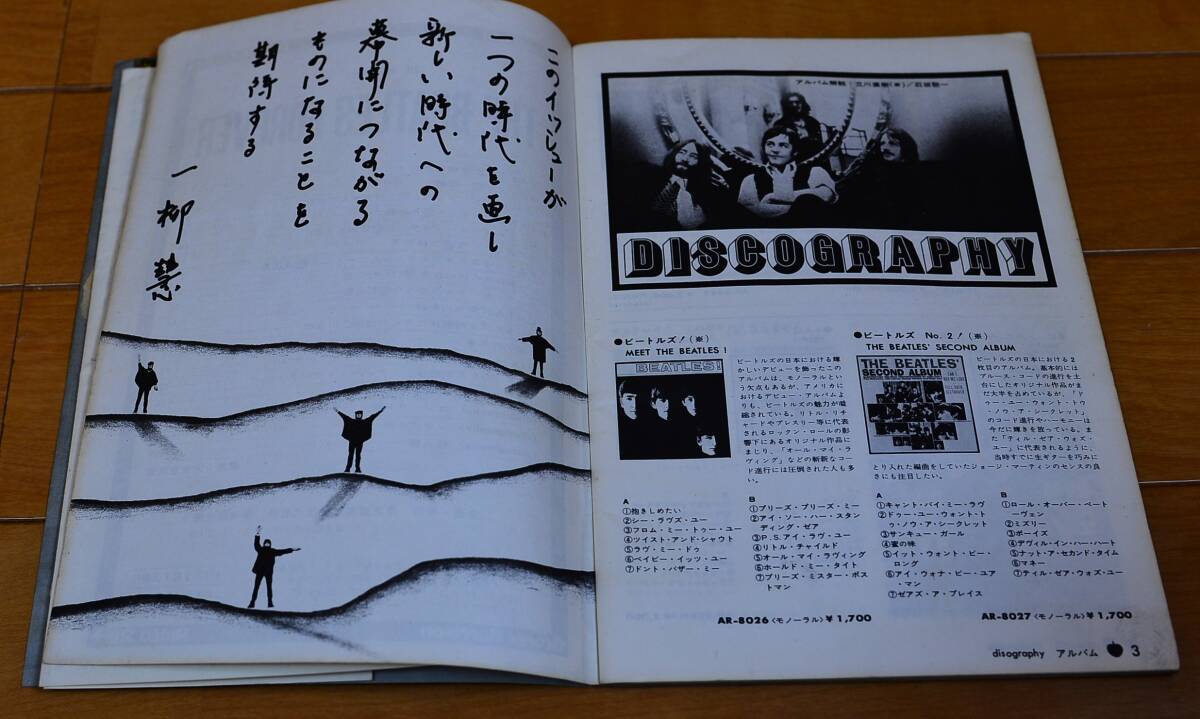 このイッシューが
一つの時代を画し
新しい時代への
幕開につながる
ものになることを
期待する
一柳慧
アルバム解説:立川直樹(※)/石坂敬一
DISCOGRAPHY
●ビートルズ!(※)
MEET THE BEATLES!
BEATLES!
ビートルズの日本における輝
かしいデビューを飾ったこの
アルバムは、モノーラルとい
う欠点もあるが、アメリカに
おけるデビュー・アルバムよ
りも、ビートルズの魅力が凝
縮されている。リトル・リチ
ャードやプレスリー等に代表
されるロックン・ロールの影
響下にあるオリジナル作品に
まじり、「オール・マイ・ラ
ヴィング」などの斬新なコー
ド進行には圧倒された人も多
い。
A
①抱きしめたい
②シー・ラヴズ・ユー
③フロム・ミー・トゥー・ユー
④ツイスト・アンド・シャウト
⑤ラヴ・ミー・ドゥ
⑥ベイビー・イッツ・ユー
⑦ドント・バザー・ミー
B
①プリーズ・プリーズ・ミー
②アイ・ソー・ハー・スタン
ディング・ゼア
③P.S.アイ・ラヴ・ユー
④リトル・チャイルド
⑤オール・マイ・ラヴィング
⑥ホールド・ミー・タイト
⑦プリーズ・ミスター・ポス
トマン
AR-8026〈モノーラル〉¥1,700
●ビートルズ No.2!(※)
THE BEATLES' SECOND ALBUM
THE BEATLES'
SECOND ALBUM
ビートルズの日本における2
枚目のアルバム。基本的には
ブルース・コードの進行を土
台にしたオリジナル作品がま
だ大半を占めているが、「ド
ゥー・ユー・ウォント・トゥ
・ノウ・ア・シークレット」
のコード進行やハーモニーは
今だに輝きを放っている。ま
た「ティル・ゼア・ウォズ・
ユー」に代表されるように、
当時すでに生ギターを巧みに
とり入れた編曲をしていたジョージ・マーティンのセンスの良
さにも注目したい。
A
①キャント・バイ・ミー・ラヴ
②ドゥー・ユー・ウォント・ト
ゥ・ノウ・ア・シークレット
③サンキュー・ガール
④蜜の味
⑤イット・ウォント・ビー・
ロング
⑥アイ・ウォナ・ビー・ユア
・マン
⑦ゼアズ・ア・プレイス
B
①ロール・オーバー・ベート
ーヴェン
②ミズリー
③ボーイズ
④デヴィル・イン・ハー・ハート
⑤ナット・ア・セカンド・タイム
⑥マネー
⑦ティル・ゼア・ウォズ・ユー
AR-8027〈モノーラル〉¥1,700
disography アルバム 3